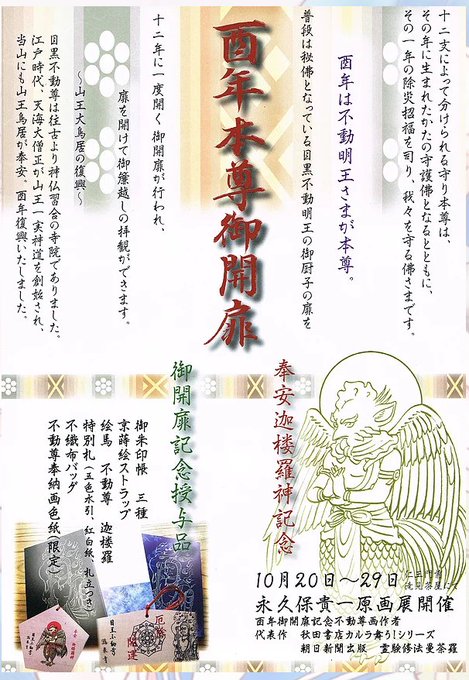 十二支によって分けられる守り本尊は、
その年に生まれたかたの守護佛となるとともに、
その一年の除災招福を司り、我々を守る佛さまです。
酉年は不動明王さまが本尊。
普段は秘佛となっている目黒不動明王の御厨子の扉を
酉年本尊御開扉
十二年に一度開く御開扉が行われ、
扉を開けて御簾越しの拝観ができます。
～山王大鳥居の復興～
目黒不動尊は往古より神仏習合の寺院でありました。
江戸時代、天海大僧正が山王一実神道を創始され、
当山にも山王鳥居が奉安、酉年復興いたしました。
奉安迦楼羅神記念
御開扉記念授与品
御朱印帳　三種
京蒔絵ストラップ
絵馬　不動尊　迦楼羅
特別札（五色水引、紅白紙、札立つき）
不織布バッグ
不動尊奉納画色紙（限定）
10月20日～29日
永久保貴一原画展開催
酉年御開扉記念不動尊画作者
代表作　秋田書店カルラ舞う！シリーズ
朝日新聞出版　霊験修法曼荼羅